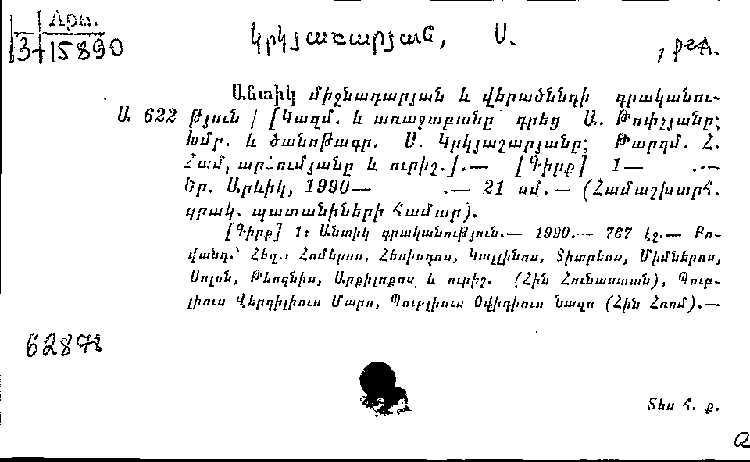 Արտ.
13-15890
Կրկյաշարյան, Ս., ред.
Անտիկ միջնադարյան և վերածննդի գրականու-
Ա 622 թյուն / [Կազմ. և առաջաբանը գրեց Ա. Թոփչյանը;
Խմբ. և ծանոթագր. Ս. Կրկյաշարյանը; Թարգմ. Հ.
Համբարձումյանը և ուրիշ.].— [Գիրք] 1— .—
Եր. Արևիկ, 1990— .— 21 սմ.— (Համաշխարհ.
գրակ. պատանիների համար).
[Գիրք] 1: Անտիկ գրականություն.— 1990.— 767 էջ.— Բո-
վանդ.՝ Հեղ.: Հոմերոս, Հեսիոդոս, Կալլինոս, Տիրտեոս, Միմներմոս,
Սոլոն, Թեոգնիս, Արքիլոքոս և ուրիշ. (Հին Հունաստան), Պուբ-
լիուս Վերգիլիուս Մարո, Պուբլիուս Օվիդիուս Նազո (Հին Հռոմ).—
Տես հ. ք.